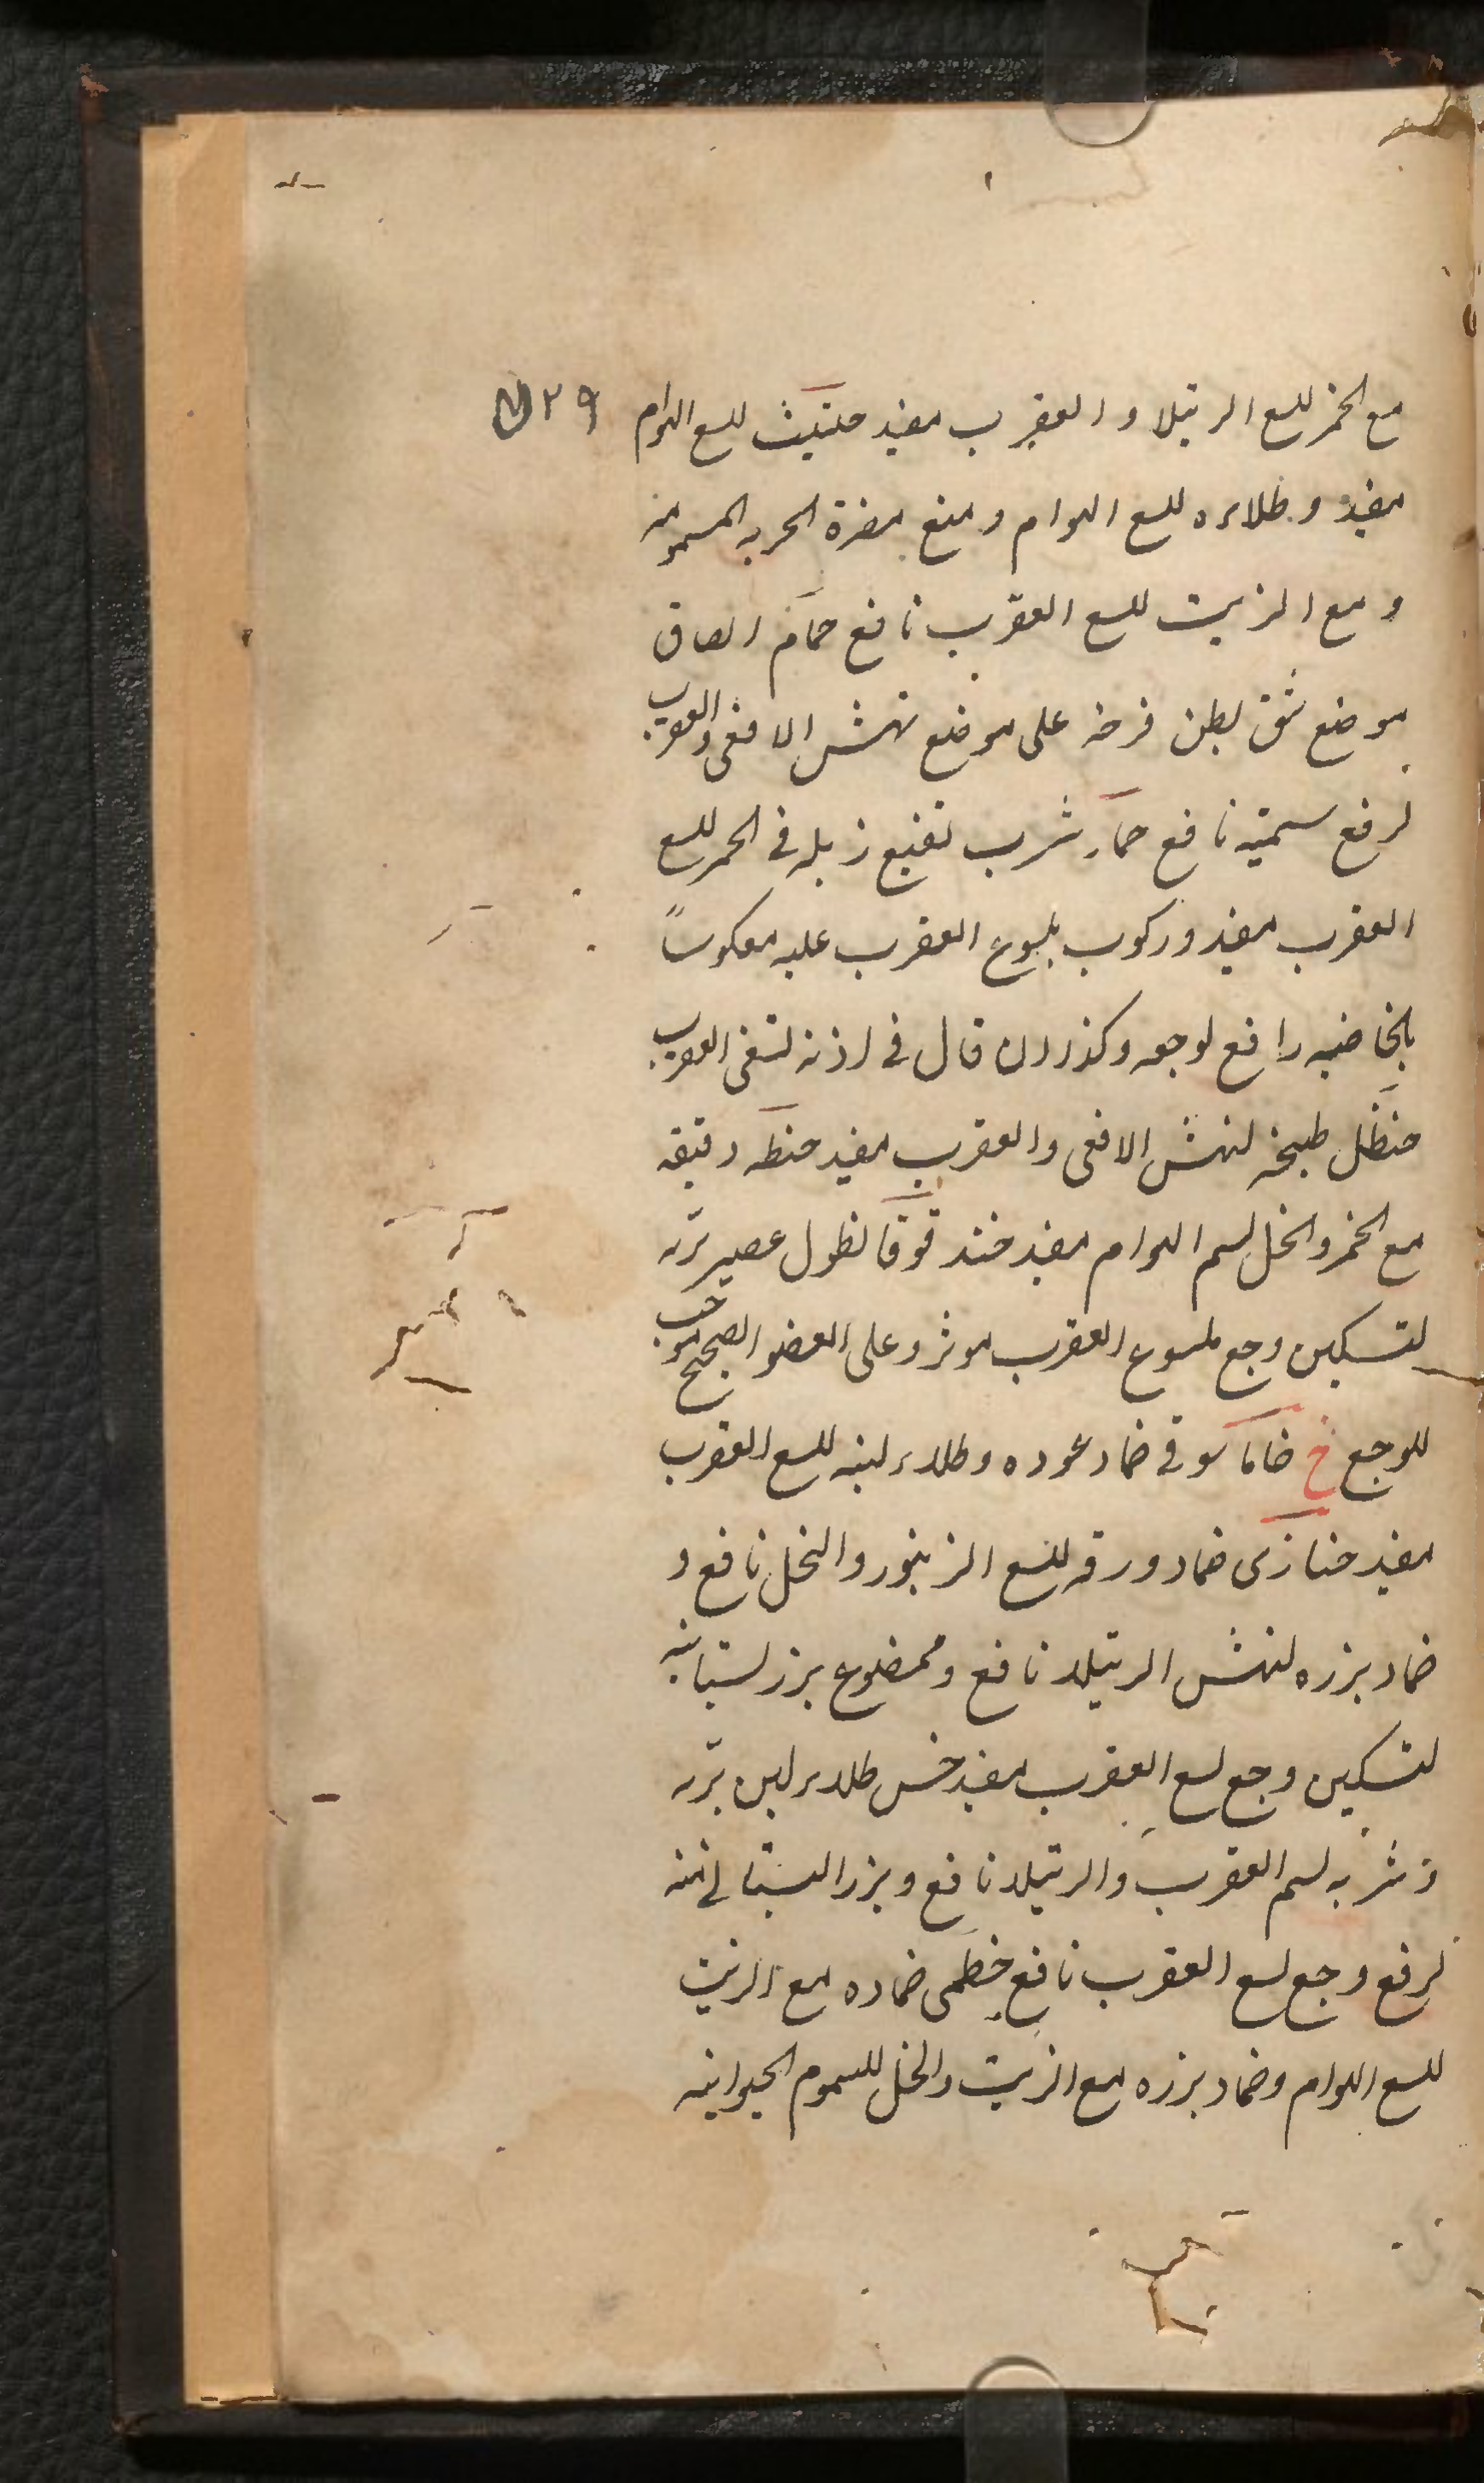 مع الخمر للسع الرتيلا و العقرب مفيد حلتيت للسع الهوام
٢٩
مفيد و طلاءه للسع الهوام و منع مضرة الحربه المسمومه
و مع الزيت للسع العقرب نافع حمام الصاق
موضع شق بطن فرخه على موضع نهش الافعى والعقرب
لرفع سميته نافع حمار شرب نقيع زبله فى الخمر للسع
العقرب مفيد و ركوب ملسوع العقرب عليه معكوساً
بالخاصيه رافع لوجعه و كذا ان قال فى اذنه لسعنى العقرب
حنظل طبيخه لنهش الافعى والعقرب مفيد حنطه دقيقه
مع الخمر والخل لسم الهوام مفيد حندقوقا نطول عصير بريه
لتسكين وجع ملسوع العقرب موثر و على العضو الصحيح موجب
للوجع خ خاماسوقى ضماد عوده و طلاء لبنه للسع العقرب
مفيد خبازى ضماد ورقه للسع الزنبور والنحل نافع و
ضماد بزره لنهش الرتيلا نافع و ممضوغ بزر بستانيه
لتسكين وجع لسع العقرب مفيد خس طلاء لبن بريه
و شربه لسم العقرب والرتيلا نافع و بزر البستانى منه
لرفع وجع لسع العقرب نافع خطمى ضماده مع الزيت
للسع الهوام و ضماد بزره مع الزيت والخل للسموم الحيوانيه